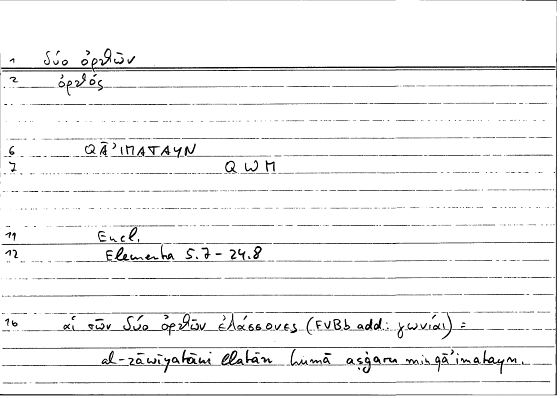 1 δύο ὀρθῶν
2 ὀρθός
6 QĀʾIMATAYN
7 QWM
11 Eucl.
12 Elementa 5.7-24.8
16 αἱ τῶν δύο ὀρθῶν ἐλάσσονες (FVBb add: γωνίαι) =
al-zāwiyatāni llatān humā aṣġaru min qāʾimatayn.